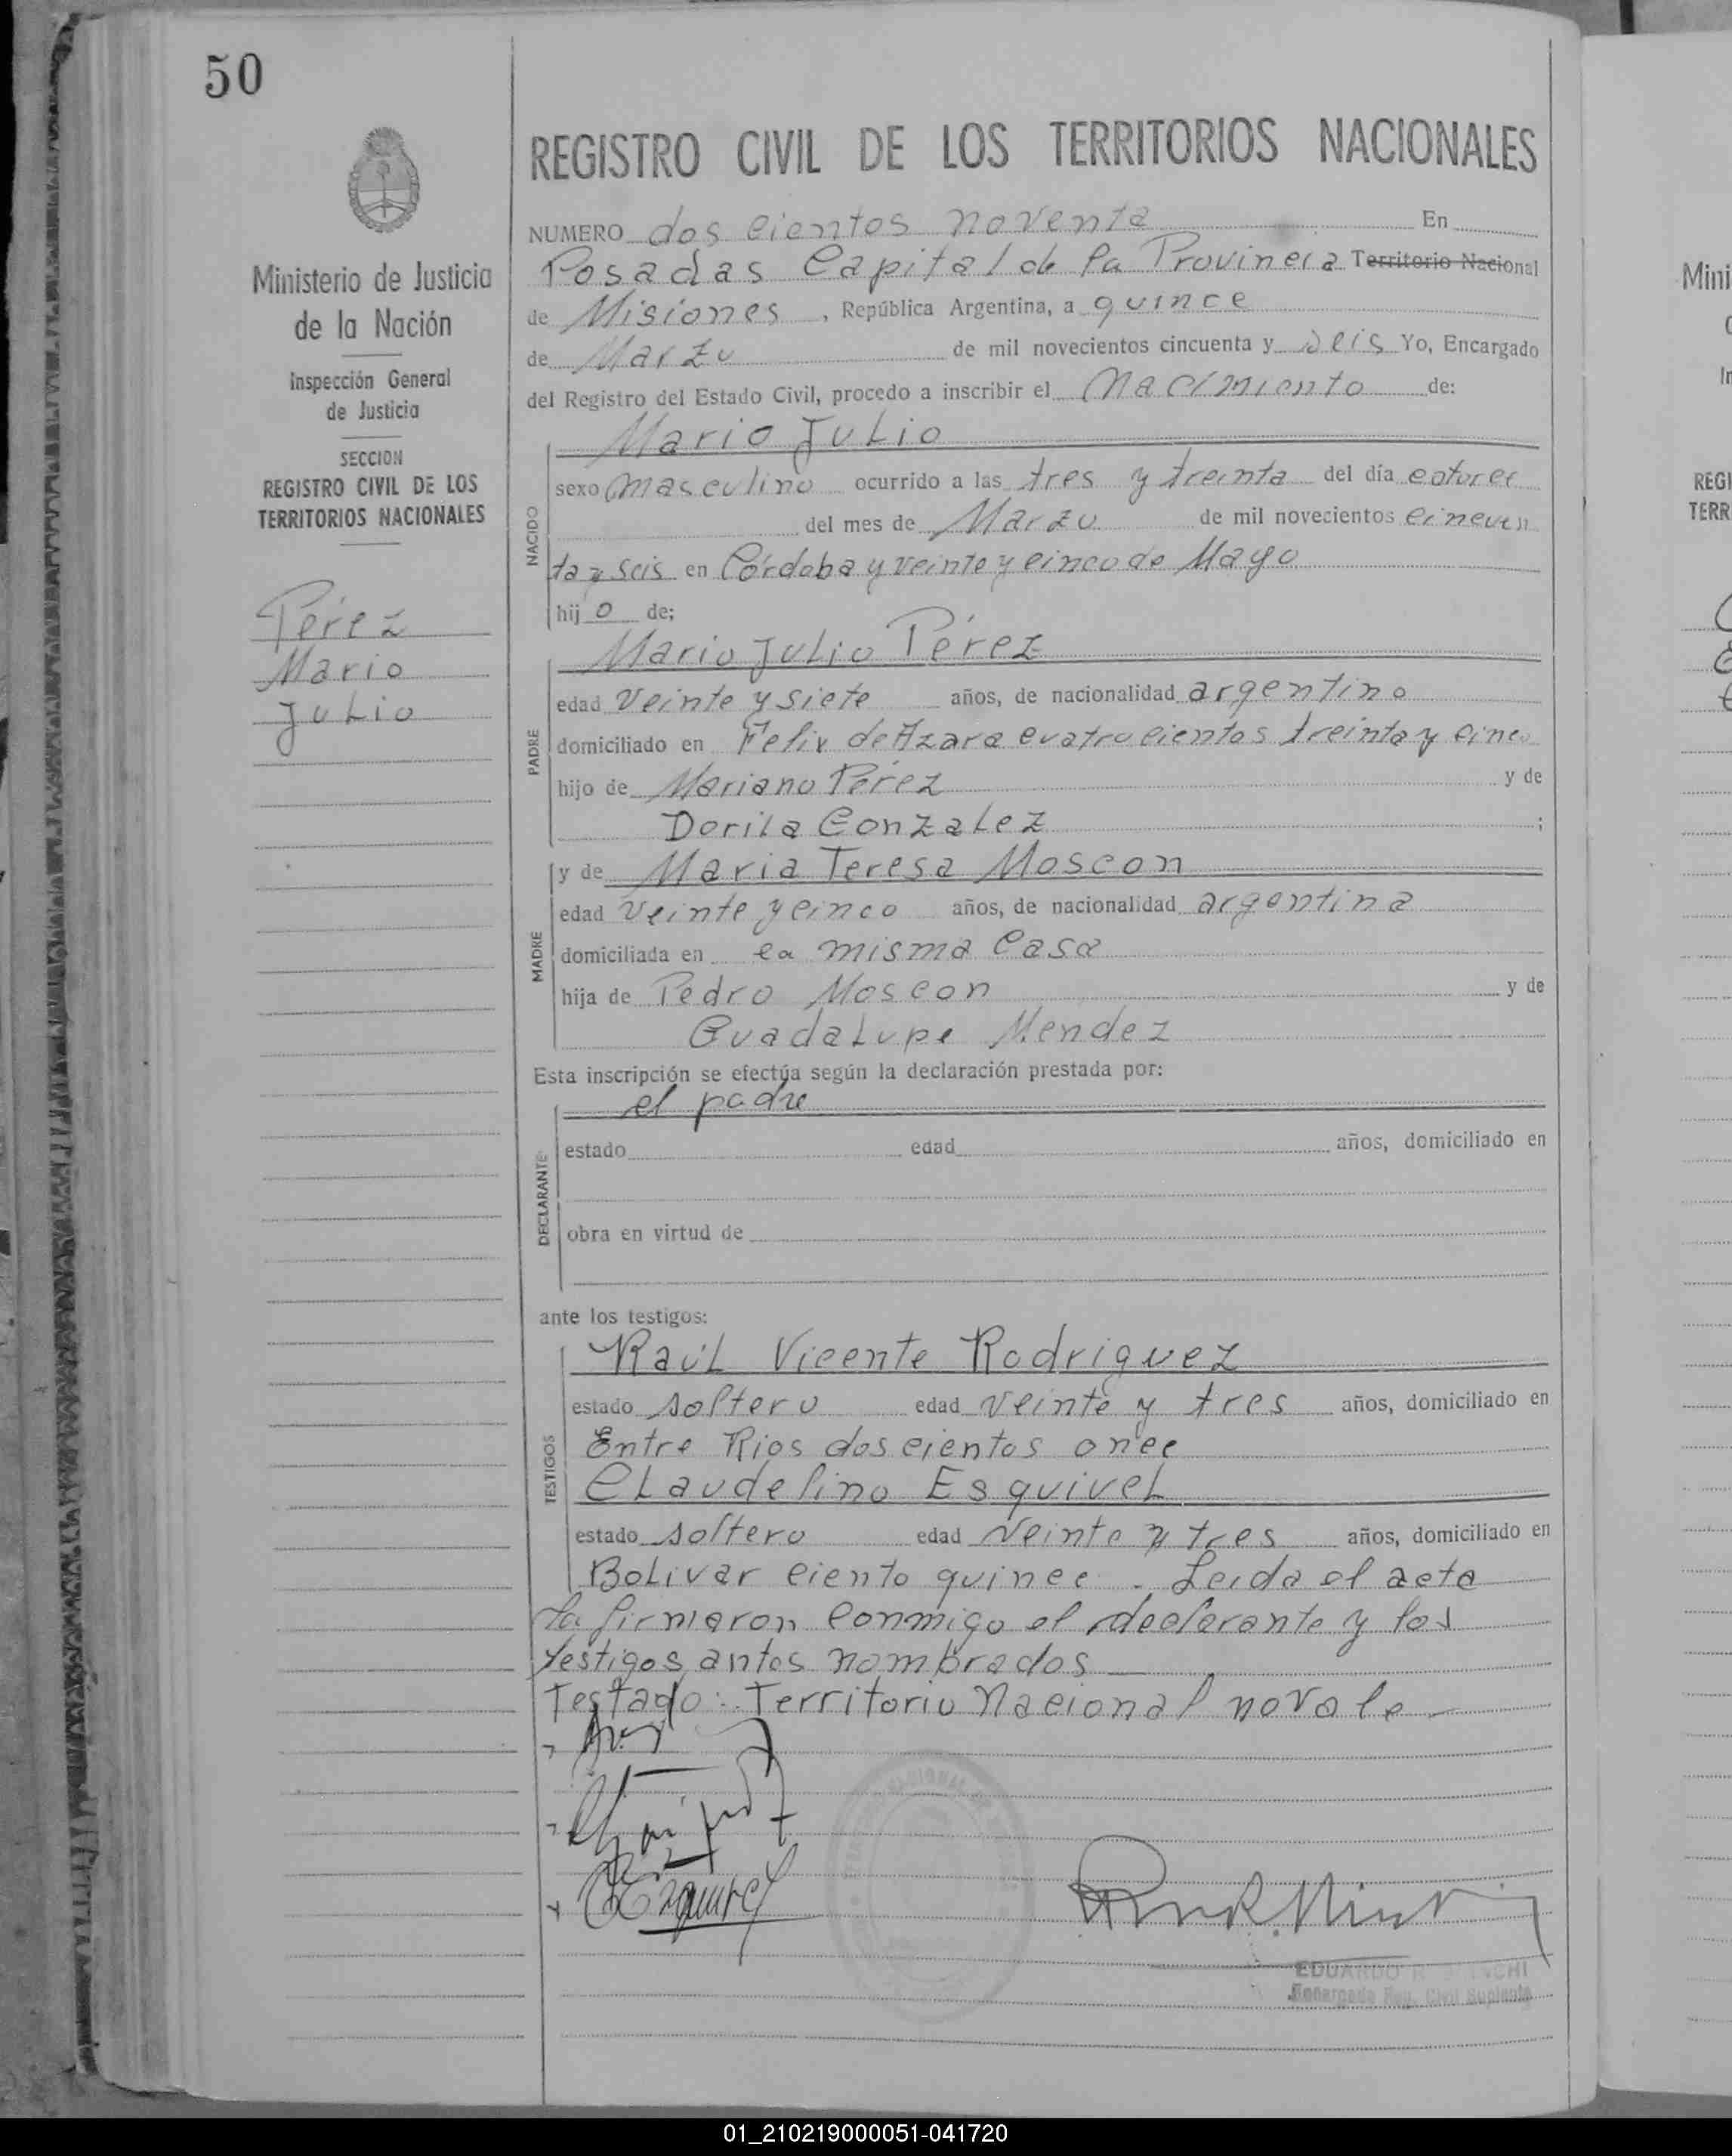 50
Ministerio de Justicia
de la Nación
Inspección General
de Justicia
SECCION
REGISTRO CIVIL DE LOS
TERRITORIOS NACIONALES
Pérez
Mario
Julio
REGISTRO CIVIL DE LOS TERRITORIOS NACIONALES
NUMERO doscientos noventa En
Posadas Capital de la Provincia Territorio Nacional
de Misiones, República Argentina, a quince
de Marzo de mil novecientos cincuenta y seis Yo, Encargado
del Registro del Estado Civil, procedo a inscribir el nacimiento de:
NACIDO
Mario Julio
sexo masculino ocurrido a las tres y treinta del día catorce
del mes de Marzo de mil novecientos cincuen
ta y seis en Córdoba y veinte y cinco de Mayo
hijo de;
PADRE
Mario Julio Pérez
edad veinte y siete años, de nacionalidad argentino
domiciliado en Felix de Azara cuatrocientos treinta y cinco
hijo de Mariano Pérez y de
Dorila Gonzalez ;
MADRE
y de Maria Teresa Moscon
edad veinte y cinco años, de nacionalidad argentina
domiciliada en la misma casa
hija de Pedro Moscon y de
Guadalupe Mendez
Esta inscripción se efectúa según la declaración prestada por:
DECLARANTE
el padre
estado edad años, domiciliado en
obra en virtud de
ante los testigos:
TESTIGOS
Raúl Vicente Rodriguez
estado soltero edad veinte y tres años, domiciliado en
Entre Rios doscientos once
Claudelino Esquivel
estado soltero edad veinte y tres años, domiciliado en
Bolivar ciento quince. Leida el acta
la firmaron conmigo el declarante y los
testigos antes nombrados
Testado: Territorio Nacional no vale
C Esquivel
EDUARDO R. BIANCHI
Encargado Reg. Civil Suplente
Mini
REGI
TERR
01_210219000051-041720